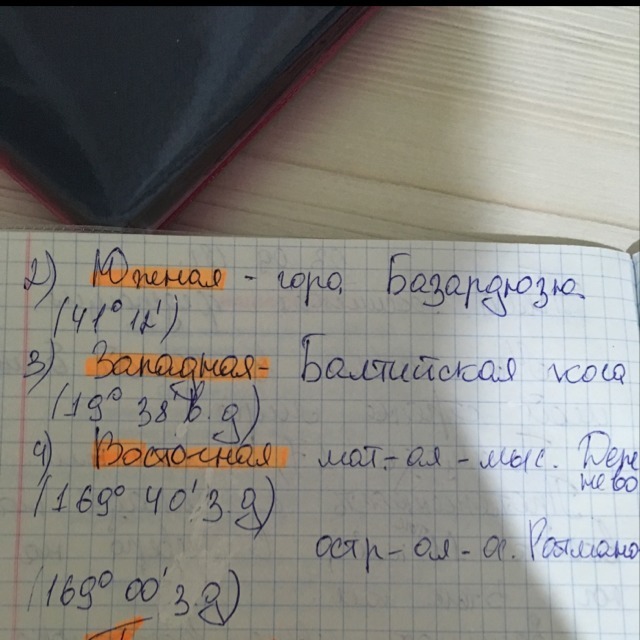 2) Южная - гора Базардюзю
(41° 12')
3) Западная- Балтийская коса
(19° 38' в д)
4) Восточная мат.-ая - мыс. Деж
нево
(169° 40' з д)
остр-ая - о. Ратмано
(169° 00' з д)